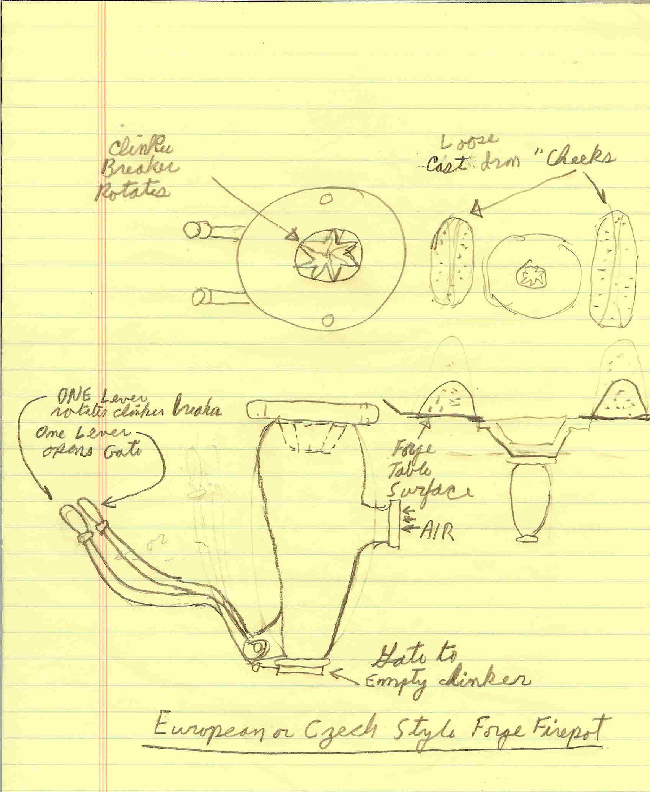 Clinker
Breaker
Rotates
Loose
Cast Iron "Cheeks
ONE Lever
rotates clinker breaker
One Lever
opens Gate
or
Forge
Table
Surface
AIR
Gate to
Empty clinker
European or Czech Style Forge Firepot